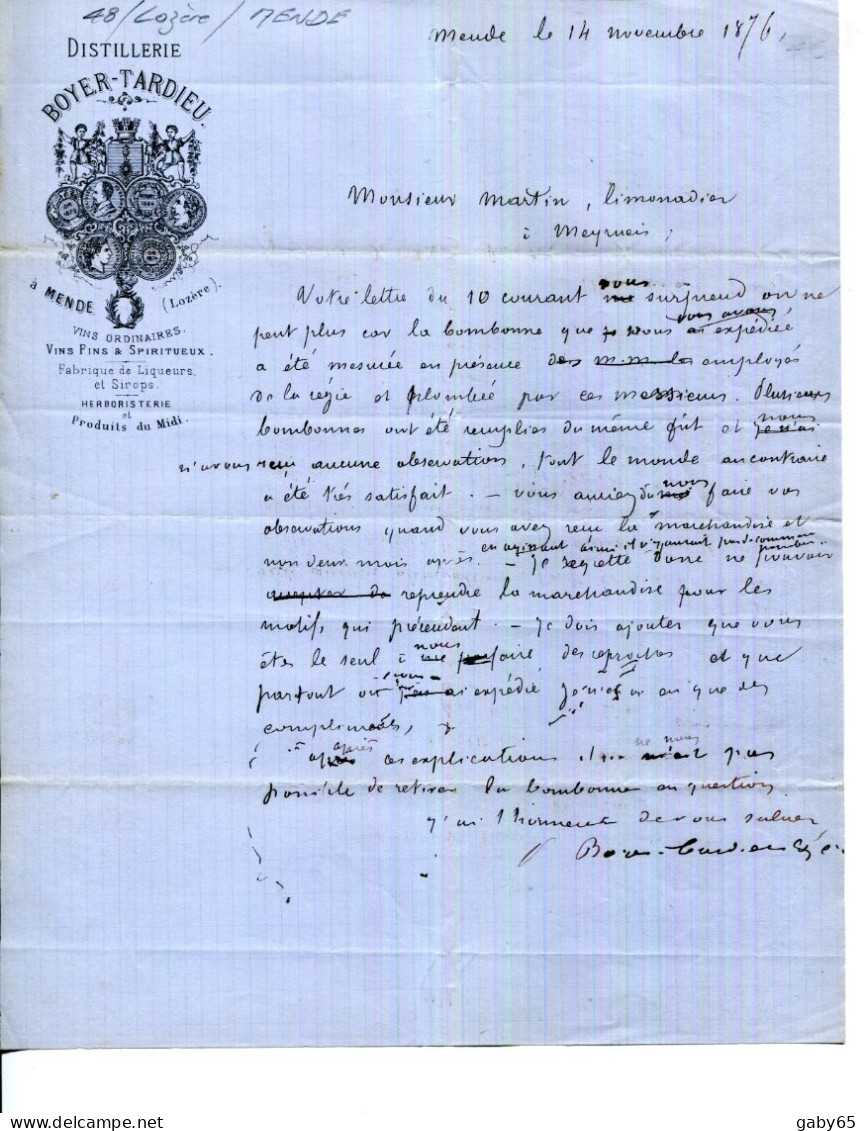 48/Lozère/MENDE
DISTILLERIE
BOYER-TARDIEU.
à MENDE (Lozère).
VINS ORDINAIRES.
VINS FINS & SPIRITUEUX.
Fabrique de Liqueurs
et Sirops.
HERBORISTERIE
et
Produits du Midi.
Mende le 14 novembre 1876,
Monsieur Martin, limonadier
à Meyrueis,
nous
Votre lettre du 10 courant me surprend on ne
vous avons
peut plus car la bombonne que je vous ai expédiée
a été mesurée en présence des m.m. les employés
de la régie et plombée par ces messieurs. Plusieurs
nous
bombonnes ont été remplies du même fût et je n'ai
n'avons reçu aucune observations, tout le monde au contraire
nous
a été très satisfait. – Vous auriez du me faire vos
observations quand vous avez reçu la marchandise et
en agissant ainsi il n'y aurait pas de commerce
possible.
non deux mois après. – Je regrette donc ne pouvoir
accepter de reprendre la marchandise pour les
motifs qui précendent. – Je dois ajouter que vous
nous
êtes le seul à me faire des reproches et que
partout où j'ai expédié je n'ai eu que des
compliments,
après
après ces explications il ne nous n'est pas
possible de retirer la bombonne en question
J'ai l'honneur de vous saluer
Boyer-Tardieu & Cie
gaby65